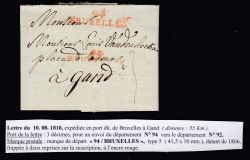 94
BRUXELLES
Monsieur
Monsieur Louis
place
à Gand
Lettre du 10. 08. 1810, expédiée en port dû, de Bruxelles à Gand (distance : 55 Km).
Port de la lettre : 3 décimes, pour un envoi du département N° 94 vers le département N° 92.
Marque postale : marque de départ « 94 / BRUXELLES », type 5 (41,5 x 10 mm.), datant de 1806,
frappée à deux reprises sur la inscription, à l'encre rouge.